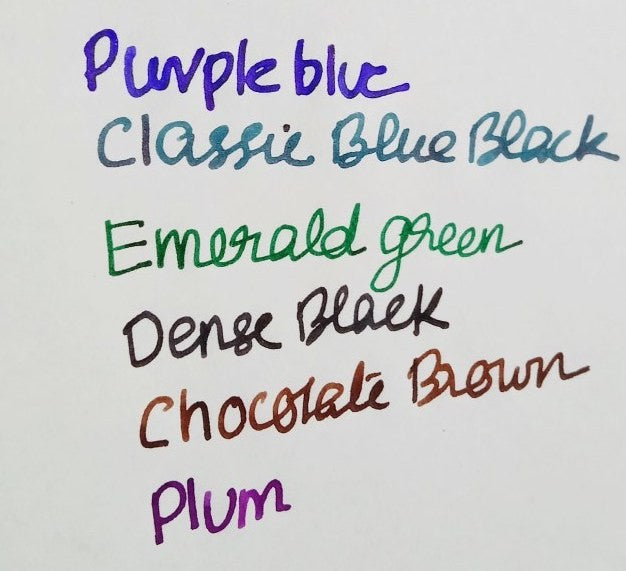 Purple blue
Classic Blue Black
Emerald green
Dense Black
Chocolate Brown
Plum